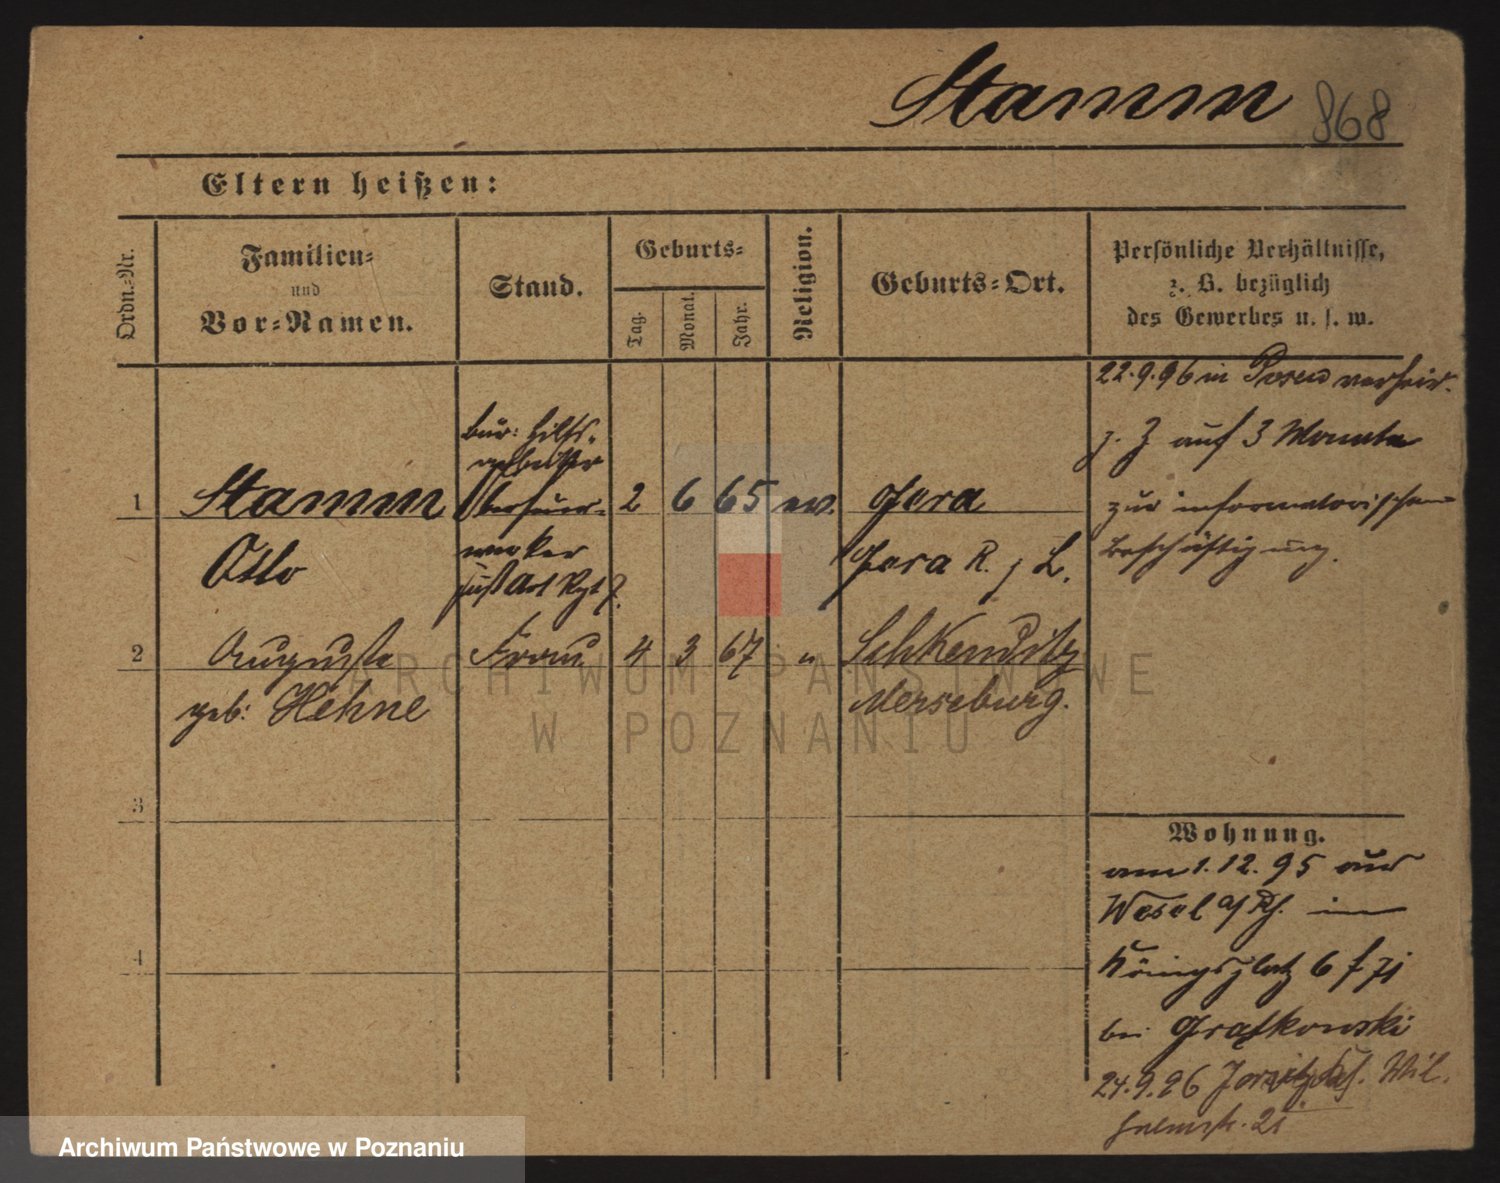 Stamm 868
Eltern heißen:
Ordn.-Nr.
Familien-
und
Vor-Namen.
Stand.
Geburts-
Tag.
Monat.
Jahr.
Religion.
Geburts-Ort.
Persönliche Verhältnisse,
z. B. bezüglich
des Gewerbes u. s. w.
1
Stamm
Otto
bür: Hilfs-
arbeiter
Oberfeuer-
werker
Fuß Art Rgt 7.
2 6 65 ev.
Gera
Gera R. j L.
22.9.96 in Posen verheir.
z. Z auf 3 Monate
zur informatorischen
Beschäftigung.
2
Auguste
geb: Hehne
Frau
4 3 67 "
Schkeuditz
Merseburg.
3
4
Wohnung.
am 1.12.95 aus
Wesel a/Rh. in
Königsplatz 6
bei Gratkowski
24.9.96 Wil.
21
ARCHIWUM PAŃSTWOWE
W POZNANIU
Archiwum Państwowe w Poznaniu